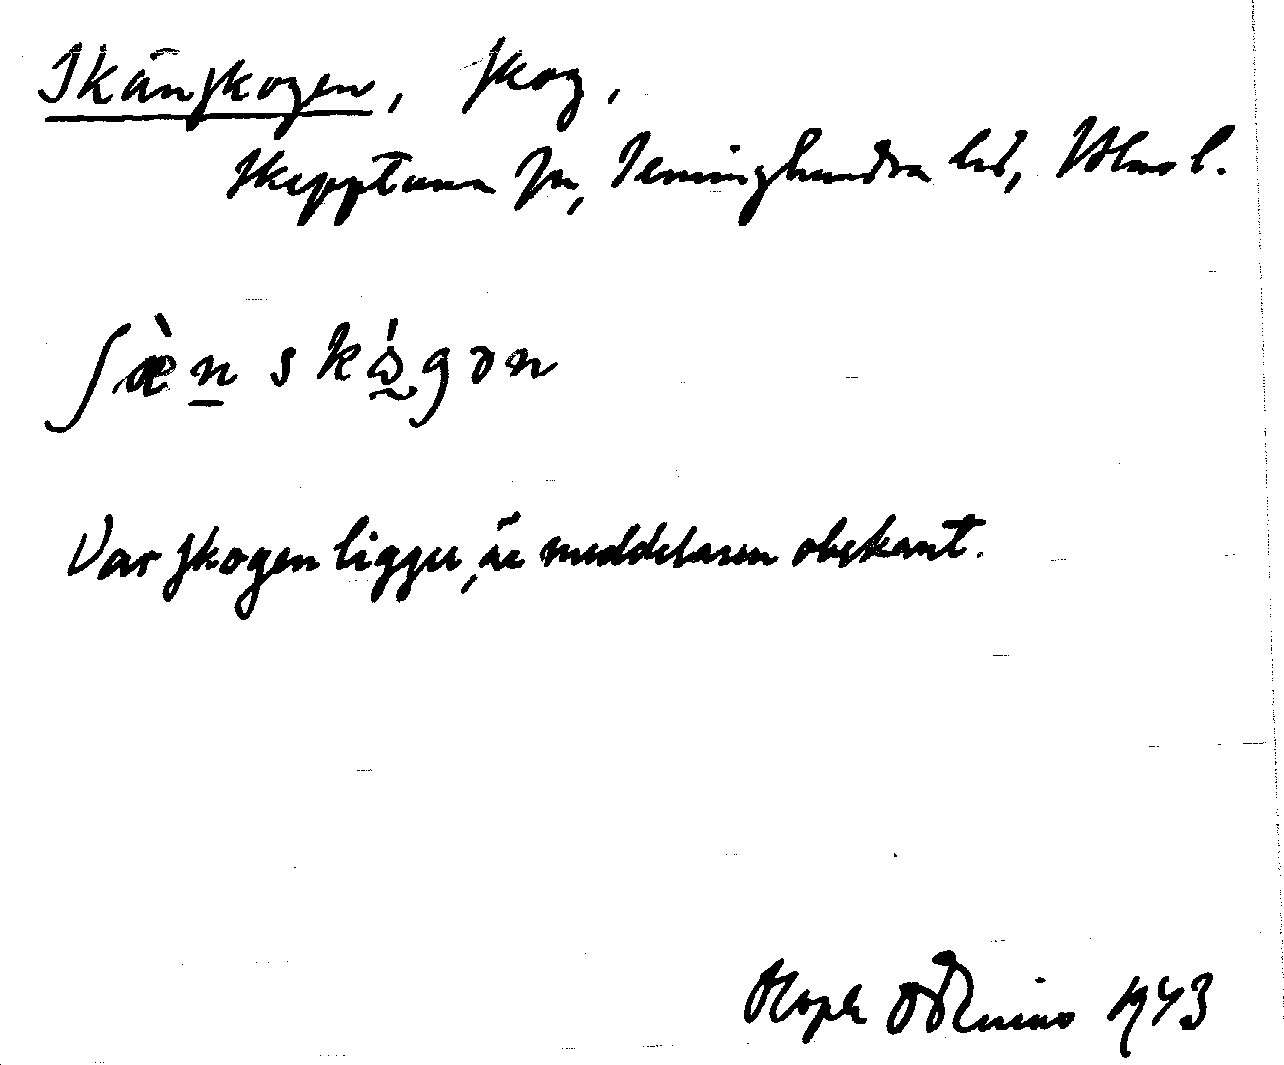 Skänskogen, skog,
Skepptuna sn, Seminghundra hd, Sthms l.
ʃæ̀n skɷ́gən
Var skogen ligger, är meddelaren obekant.
1943